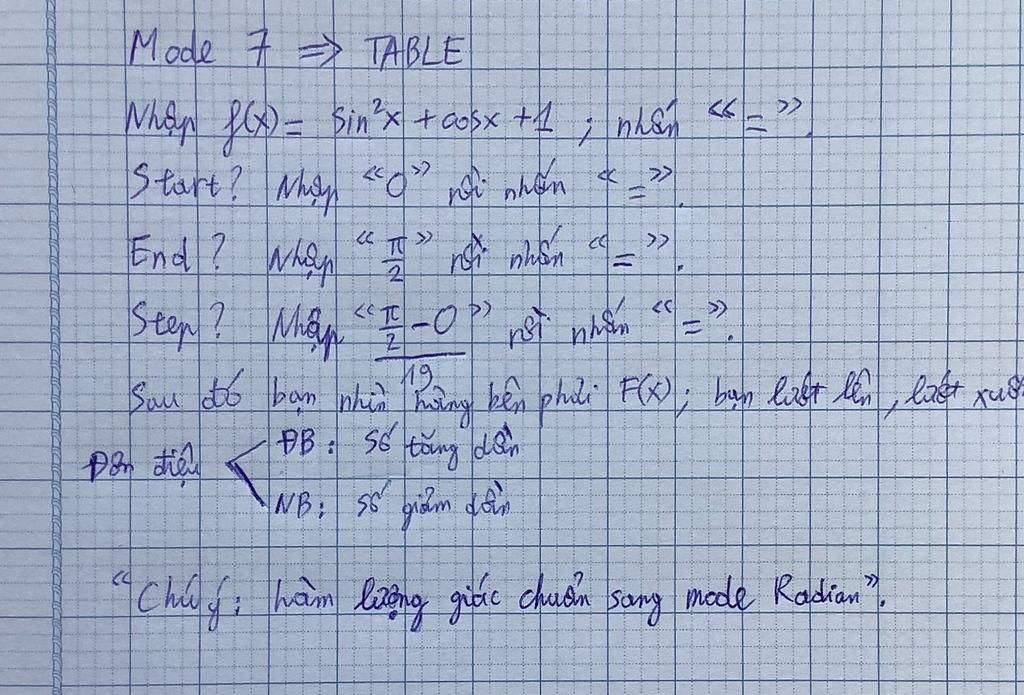 Mode 7 => TABLE
Nhập f(x) = sin²x + cosx + 1 ; nhấn “=”.
Start? Nhập “0” rồi nhấn “=”.
End? Nhập “π/2” rồi nhấn “=”.
Step? Nhập “(π/2 - 0)/19” rồi nhấn “=”.
Sau đó bạn nhìn hàng bên phải F(x); bạn lướt lên, lướt
Đơn điệu
ĐB: số tăng dần
NB: số giảm dần
“Chú ý: hàm lượng giác chuẩn sang mode Radian”.